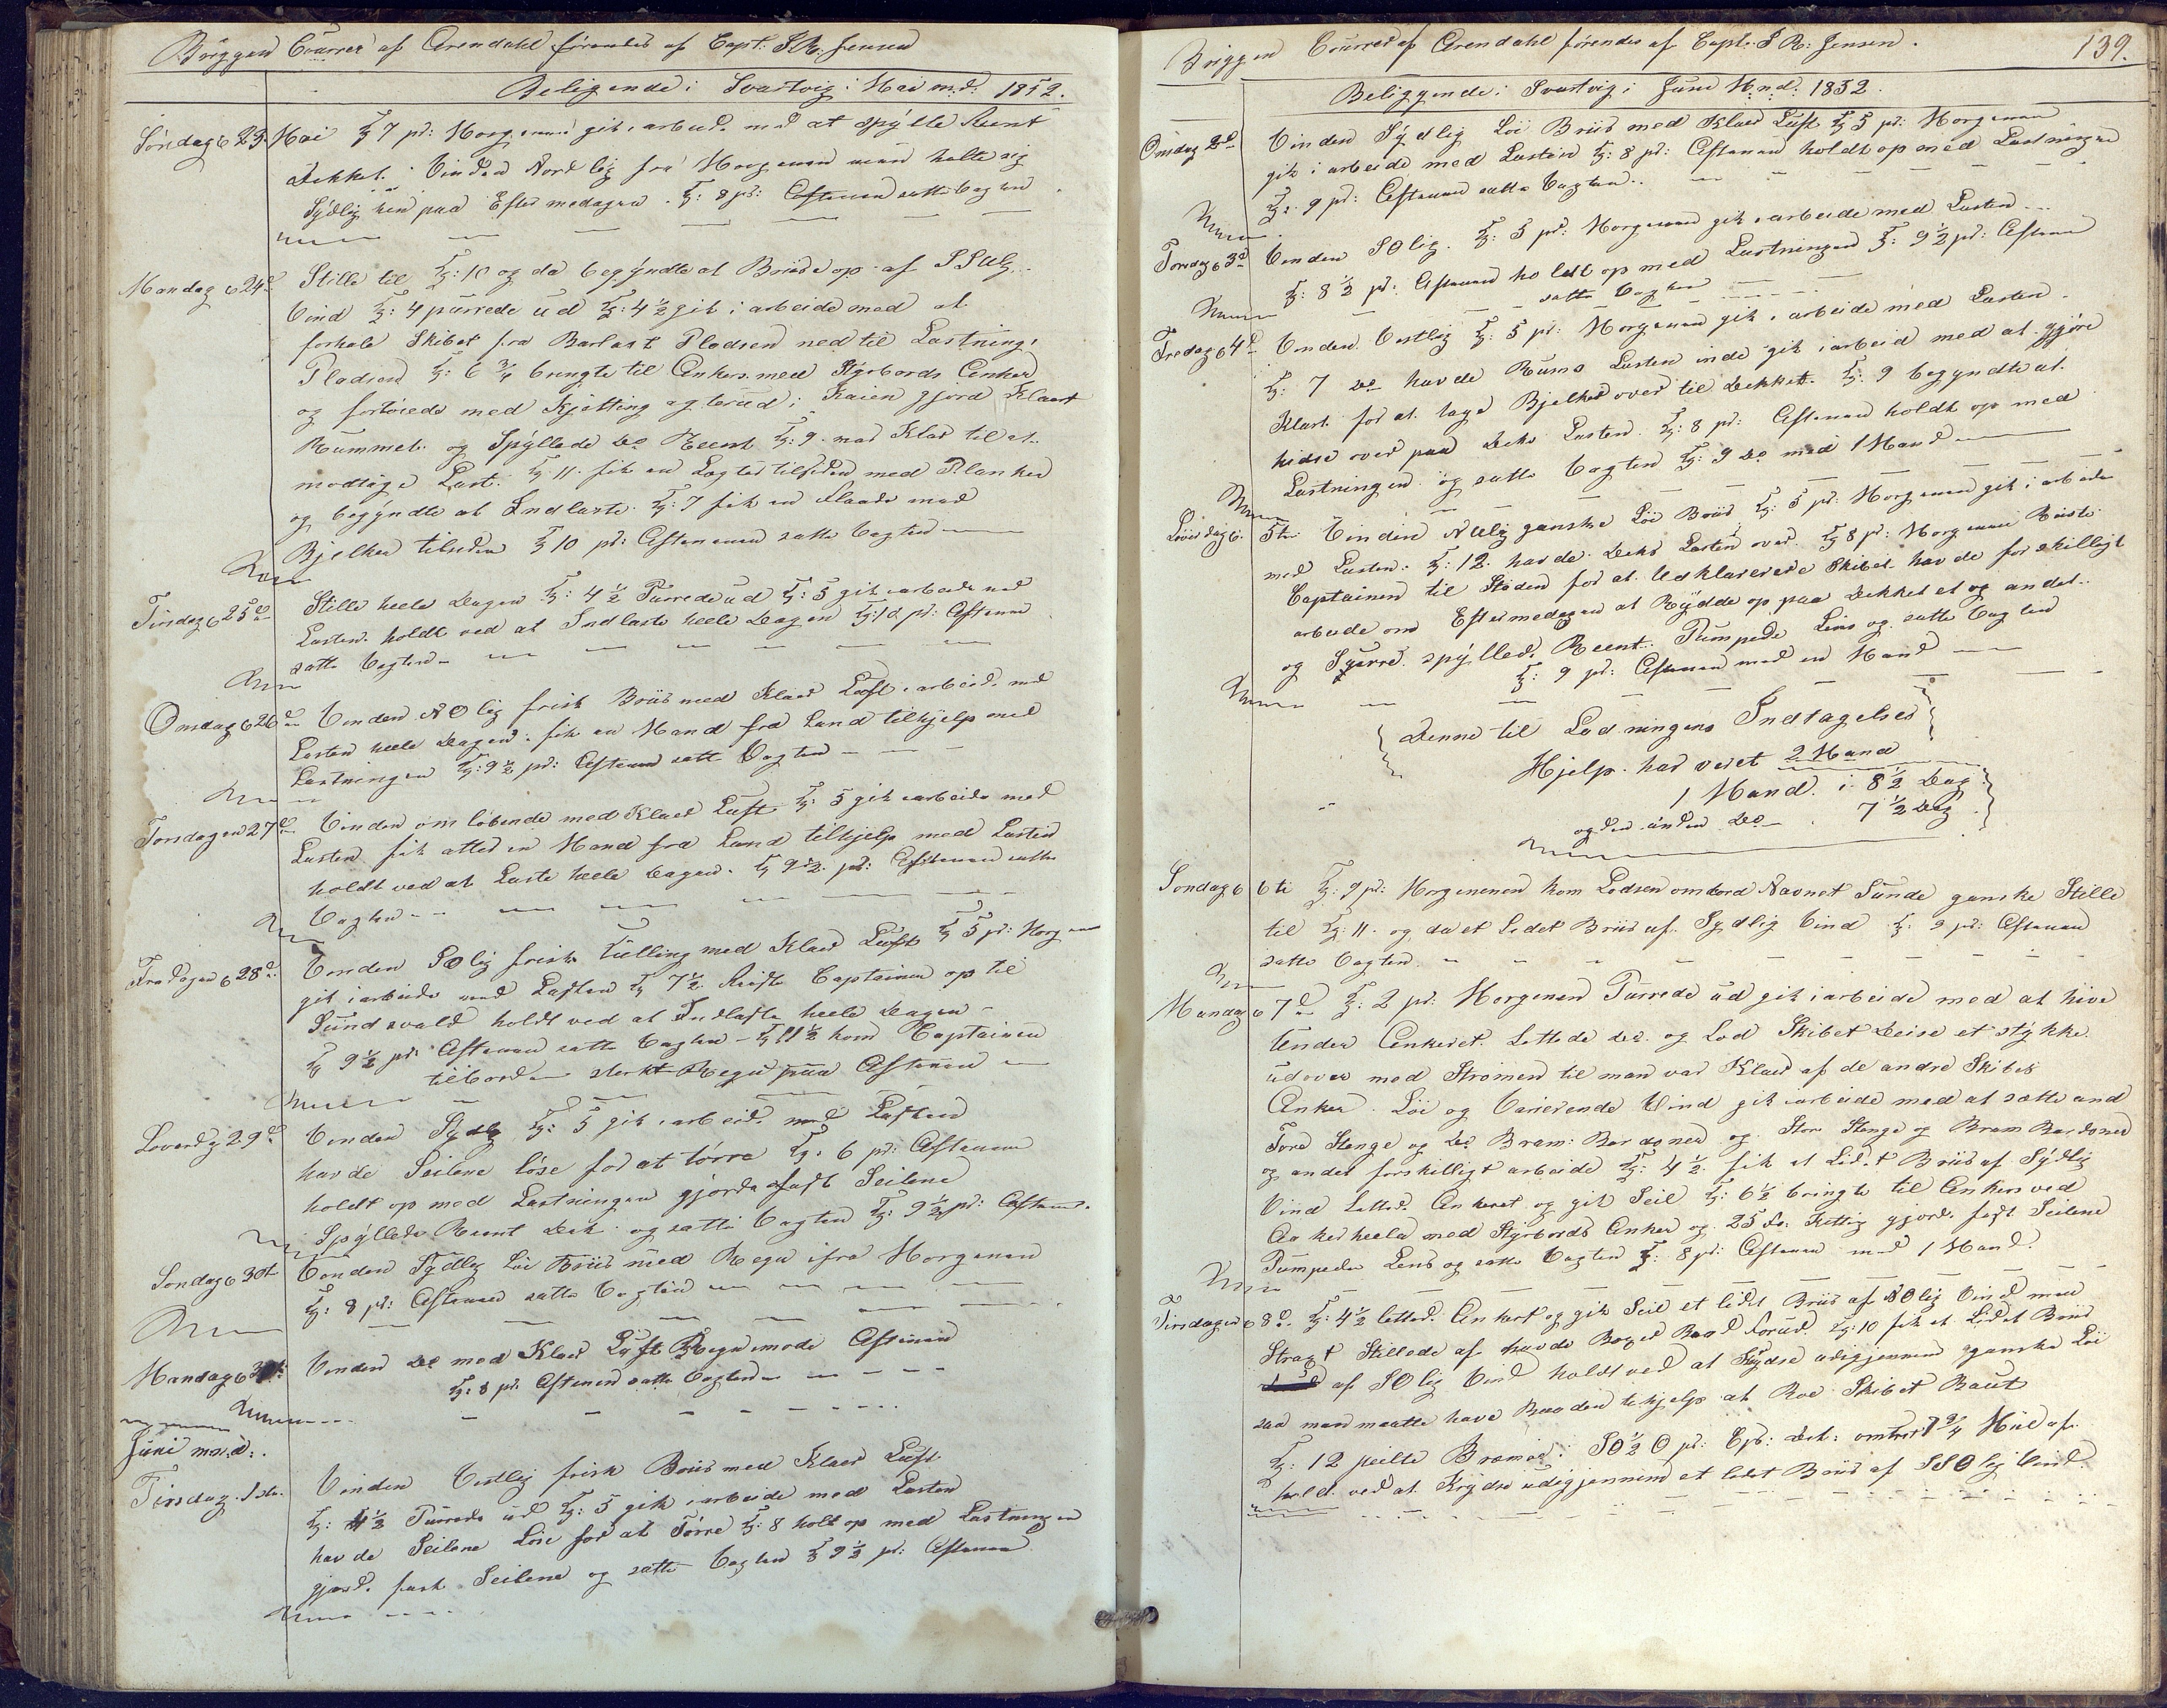 Briggen Courrer af Arendahl förendes af Capt: S R: Jensen
Beligende i Svartvig i Mai md: 1852.
Söndag 6 23 Mai Kl 7 pr: Morgenen gik i arbeide med at spylle Reent
Dekket. Vinden Nordlig fra Morgenen men holte sig
Sydlig hen paa Eftermedagen. Kl: 8 pr: Aftenen satte Vagten
Mandag 6 24de Stille til Kl: 10 og da begyndte at Briese op af
Vind Kl: 4 purrede ud Kl: 4 ½ gik i arbeide med at
forhale Skibet fra Barlast Pladsen ned til Lastnings
Pladsen Kl: 6 ¾ bragte til Ankers med Styrbords Anker
og fortöiede med Kjetting agterud i Kaien gjord Klaart
Rummet og Spyllede do Reent Kl: 9 var Klar til at
modtage Last. Kl 11 fik en Lagter tilsiden med Planker
og begyndte at Indlaste. Kl: 7 fik en Flaade med
Bjelker tilsiden Kl 10 pr: Aftenenen satte Vagten
Tirsdag 6 25de Stille heele Dagen Kl: 4 ½ Purrede ud Kl: 5 gik i arbeide med
Lasten holdt ved at Indlaste heele Dagen Kl: 10 pr: Aftenen
satte Vagten
Onsdag 6 26de Vinden NO lig frisk Briis med Klaer Luft i arbeide med
Lasten heele Dagen. fik en Mand fra Land tilhjelp med
Lastningen Kl: 9 ½ pr: Aftenen satt Vagten
Torsdagen 27de Vinden om löbende med Klaer Luft Kl: 5 gik i arbeide med
Lasten fik atter en Mand fra Land tilhjelp med Lasten
holdt ved at Laste heele Dagen. Kl 9 ½ pr: Aftenen satte
Vagten
Fredagen 6 28de Vinden SO lig frisk Kulling med Klaer Luft Kl 5 pr: Morgenen
gik i arbeide med Lasten Kl 7 ½ Reiste Captainen op til
Sundsvald holdt ved at Indlaste heele Dagen
Kl 9 ½ pr: Aftenen satte Vagten - Kl 11 ½ kom Captainen
tilbord sterkt Regn paa Aftenen
Löverdag 29de Vinden Sydlig Kl: 5 gik i arbeide med Lasten
havde Seilene löse for at törre Kl: 6 pr: Aftenen
holdt op med Lastningen gjorde fast Seilene
Spyllede Reent Dek og satte Vagten Kl: 9 ½ pr: Aftenen.
Söndag 6 30te Vinden Sydlig Löi Briis med Regn ifra Morgenen
Kl: 8 pr: Aftenen satte Vagten
Mandag 6 31te Vinden do med Klaer Luft Regn mode Aftenen
Kl: 8 pr: Aftenen satte Vagten
Juni mnd:
Tirsdag 1ste. Vinden Vestlig frisk Briis med Klaer Luft.
Kl: 4 ½ Purrede ud Kl: 5 gik i arbeide med Lasten
havde Seilene Löse for at Törre Kl: 8 holt op med Lastningen
gjord. fast Seilene og satte Vagten Kl 9 ½ pr: Aftenen
Briggen Courrer af Arendahl förendes af Capt: S R: Jensen. 139.
Beliggende i Svartvig i Juni Mnd. 1852.
Onsdag 2de Vinden Sydlig Löi Briis med Klaer Luft Kl 5 pr: Morgenen
gik i arbeide med Lasten Kl: 8 pr: Aftenen holdt op med Lastningen
Kl: 9 pr: Aftenen satte Vagten.
Torsdag 6 3de Vinden SO lig. Kl: 5 pr: Morgenen gik i arbeide med Lasten
Kl: 8 ½ pr: Aftenen holdt op med Lastningen Kl: 9 ½ pr: Aftenen
satte Vagten
Fredag 6 4de Vinden Vestlig Kl: 5 pr: Morgenen gik i arbeide med Lasten.
Kl: 7 do havde Rums Lasten inde gik i arbeid med at gjöre
Klart for at tage Bjelker over til Dekket. Kl: 9 begyndte at
hidse over paa Deks Lasten. Kl: 8 pr: Aftenen holdt op med
Lastningen og satte Vagten Kl: 9 do med 1 Mand
Löverdag 6. 5te Vinden ganske Löi Briis Kl: 5 pr: Morgenen gik i arbeide
med Lasten. Kl: 12 havde Deks Lasten over. Kl 8 pr: Morgenen Reiste
Captainen til Staden for at Udklarerere Skibet havde forskilligt
arbeide om Eftermedagen at Rydde op paa Dekket et og andet.
og Skurre. spylled. Reent. Pumpede Lens og satte Vagten
Kl: 9 pr: Aftenen med en Mand
Denne til Ladningens Indtagelse
Hjelp har veiet 2 Mand
1 Mand. i 8 ½ Dag
og den anden do 7 ½ Dag
Söndag 6 6te Kl: 9 pr: Morgenenen kom Lodsen ombord Navnet Sunde ganske Stille
til Kl: 11 og da et Lidet Briis af Sydlig Vind Kl: 9 pr: Aftenen
satte Vagten
Mandag 6 7de Kl: 2 pr: Morgenen Purrede ud gik i arbeide med at hive
under Ankeret. Lettede do. og Lod Skibet Deise et stykke
udover med Strömen til man var Klaer af de andre Skibes
Anker. Löi og Varierende Vind gik i arbeide med at sætte und
Fore Stenge og do Bram: Bardoner og Store Stenge og Bram Bardoner
og andet forskilligt arbeide Kl: 4 ½ fik et Lidet Briis af Sydlig
Vind Letted. Ankeret og gik Seil Kl: 6 ½ bringte til Ankers ved
med Styrbords Anker og 25 Fv. Ketting gjord. fast Seilene
Pumpede Lens og satte Vagten Kl: 8 pr: Aftenen med 1 Mand.
Tirsdagen 6 8de. Kl: 4 ½ letted. Ankert og gik Seil et lidet Briis af NO lig Vind men
Stragt Stillede af havde Boxer Baad forud. Kl: 10 fik et Lidet Briis
af SO lig Vind holdt ved at Krydse udigjennem ganske Löi
saa man maatte have Baaden tehjelp at Roe Skibet Baut
Kl: 12 peilte Bremö i SO ½ O pr: Cps: Dist: omtret 1 ¾ Miil af.
hold. ved at Krydse udigjennem et lidet Briis af SSO lig Vind